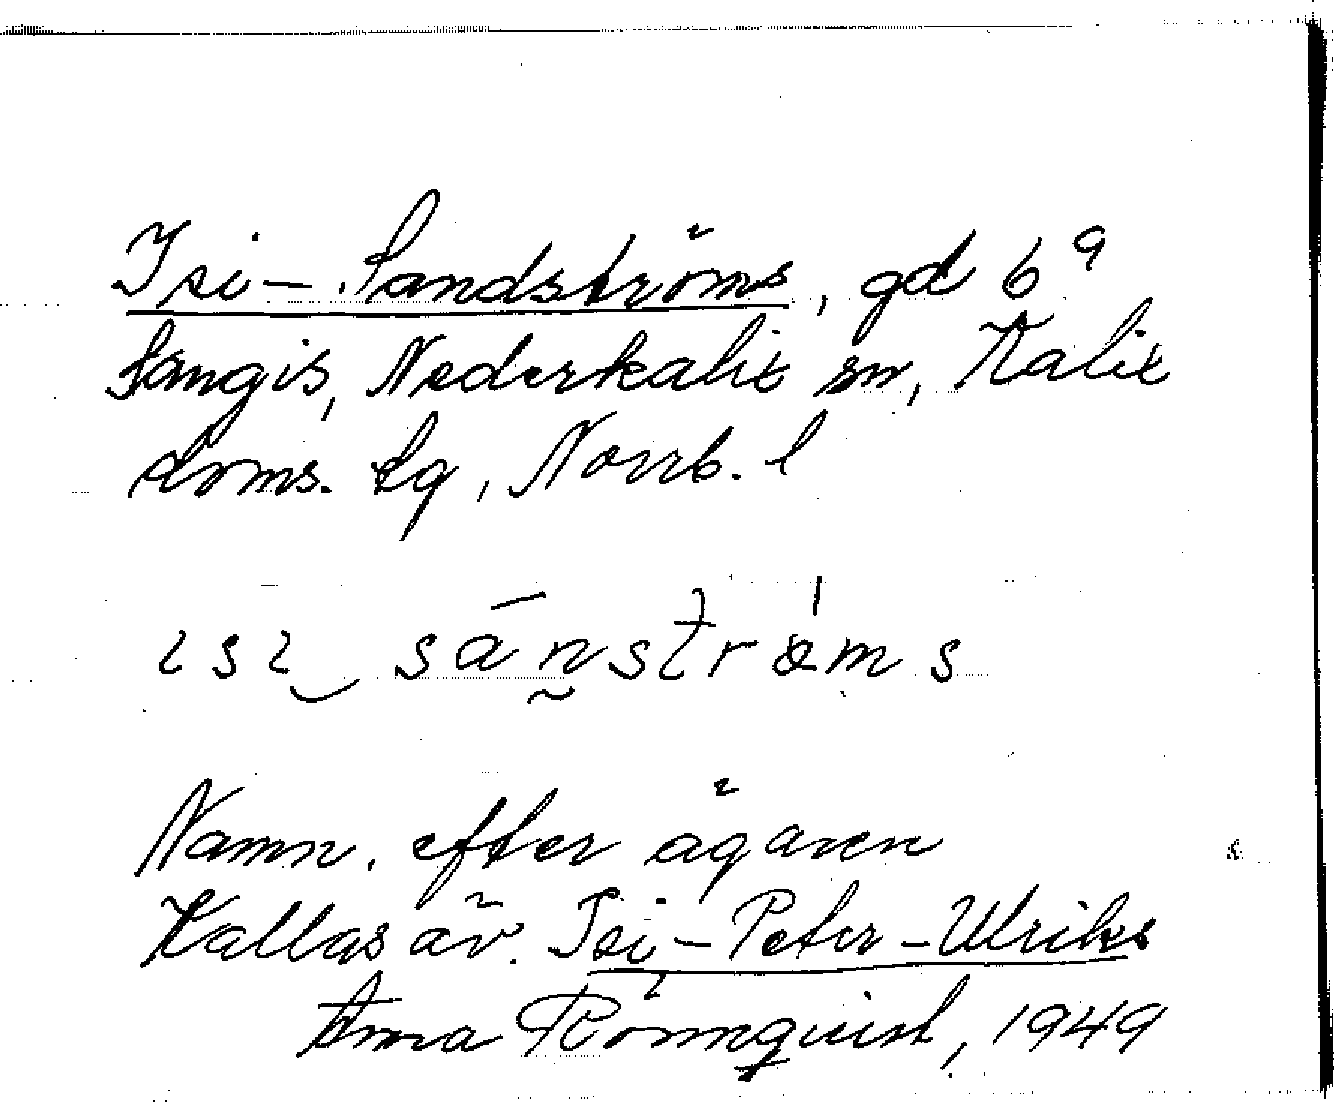 Isi-Sandströms, gd 6⁹
Sangis, Nederkalix sn, Kalix
doms. tg, Norrb. l
ısı sánströms
Namn. efter ägaren
Kallas äv. Isi-Peter-Ulriks
Anna Rönnquist, 1949